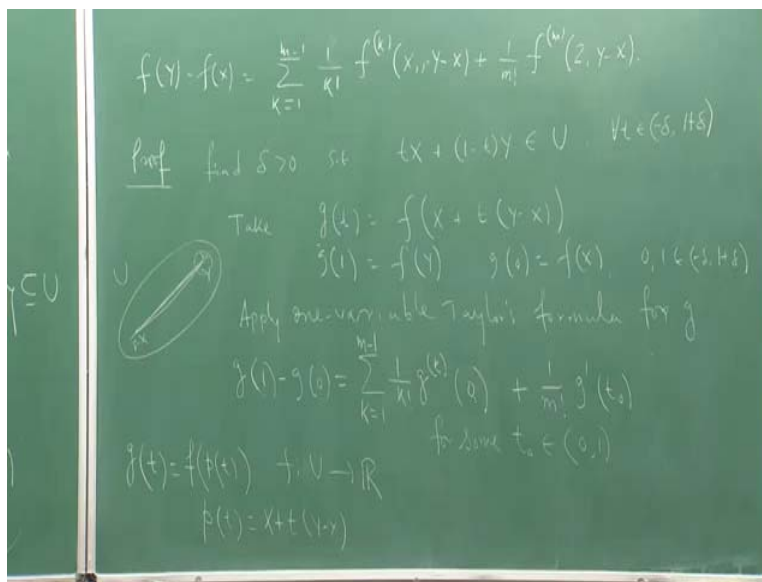 f(Y) - f(x) = \sum_{k=1}^{m-1} \frac{1}{k!} f^{(k)}(x, Y-x) + \frac{1}{m!} f^{(m)}(z, Y-x).
Proof find δ>0 s.t. tX + (1-t)Y ∈ U, ∀t ∈ (-δ, 1+δ)
Take g(t) = f(X + t(Y-X))
g(1) = f(Y) g(0) = f(X) 0, 1 ∈ (-δ, 1+δ)
⊆ U
U
X
Y
Apply one-variable Taylor's formula for g
g(1) - g(0) = \sum_{k=1}^{m-1} \frac{1}{k!} g^{(k)}(0) + \frac{1}{m!} g'(t_0)
for some t_0 ∈ (0,1)
g(t) = f(p(t)) f: U → ℝ
p(t) = X + t(Y-X)